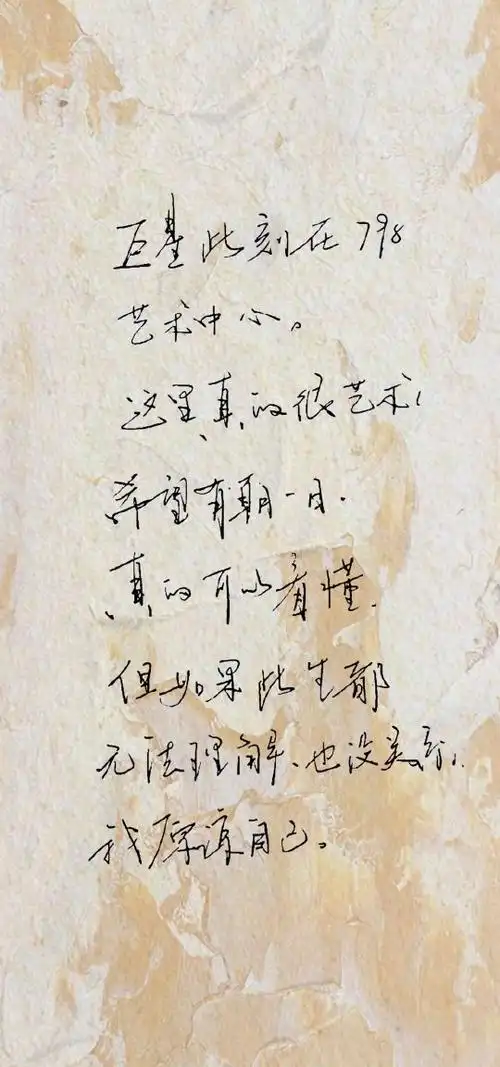 巨基此刻在798
艺术中心。
这里真的很艺术，
希望有朝一日.
真的可以看懂.
但如果此生都
无法理解、也没关系，
我原谅自己。